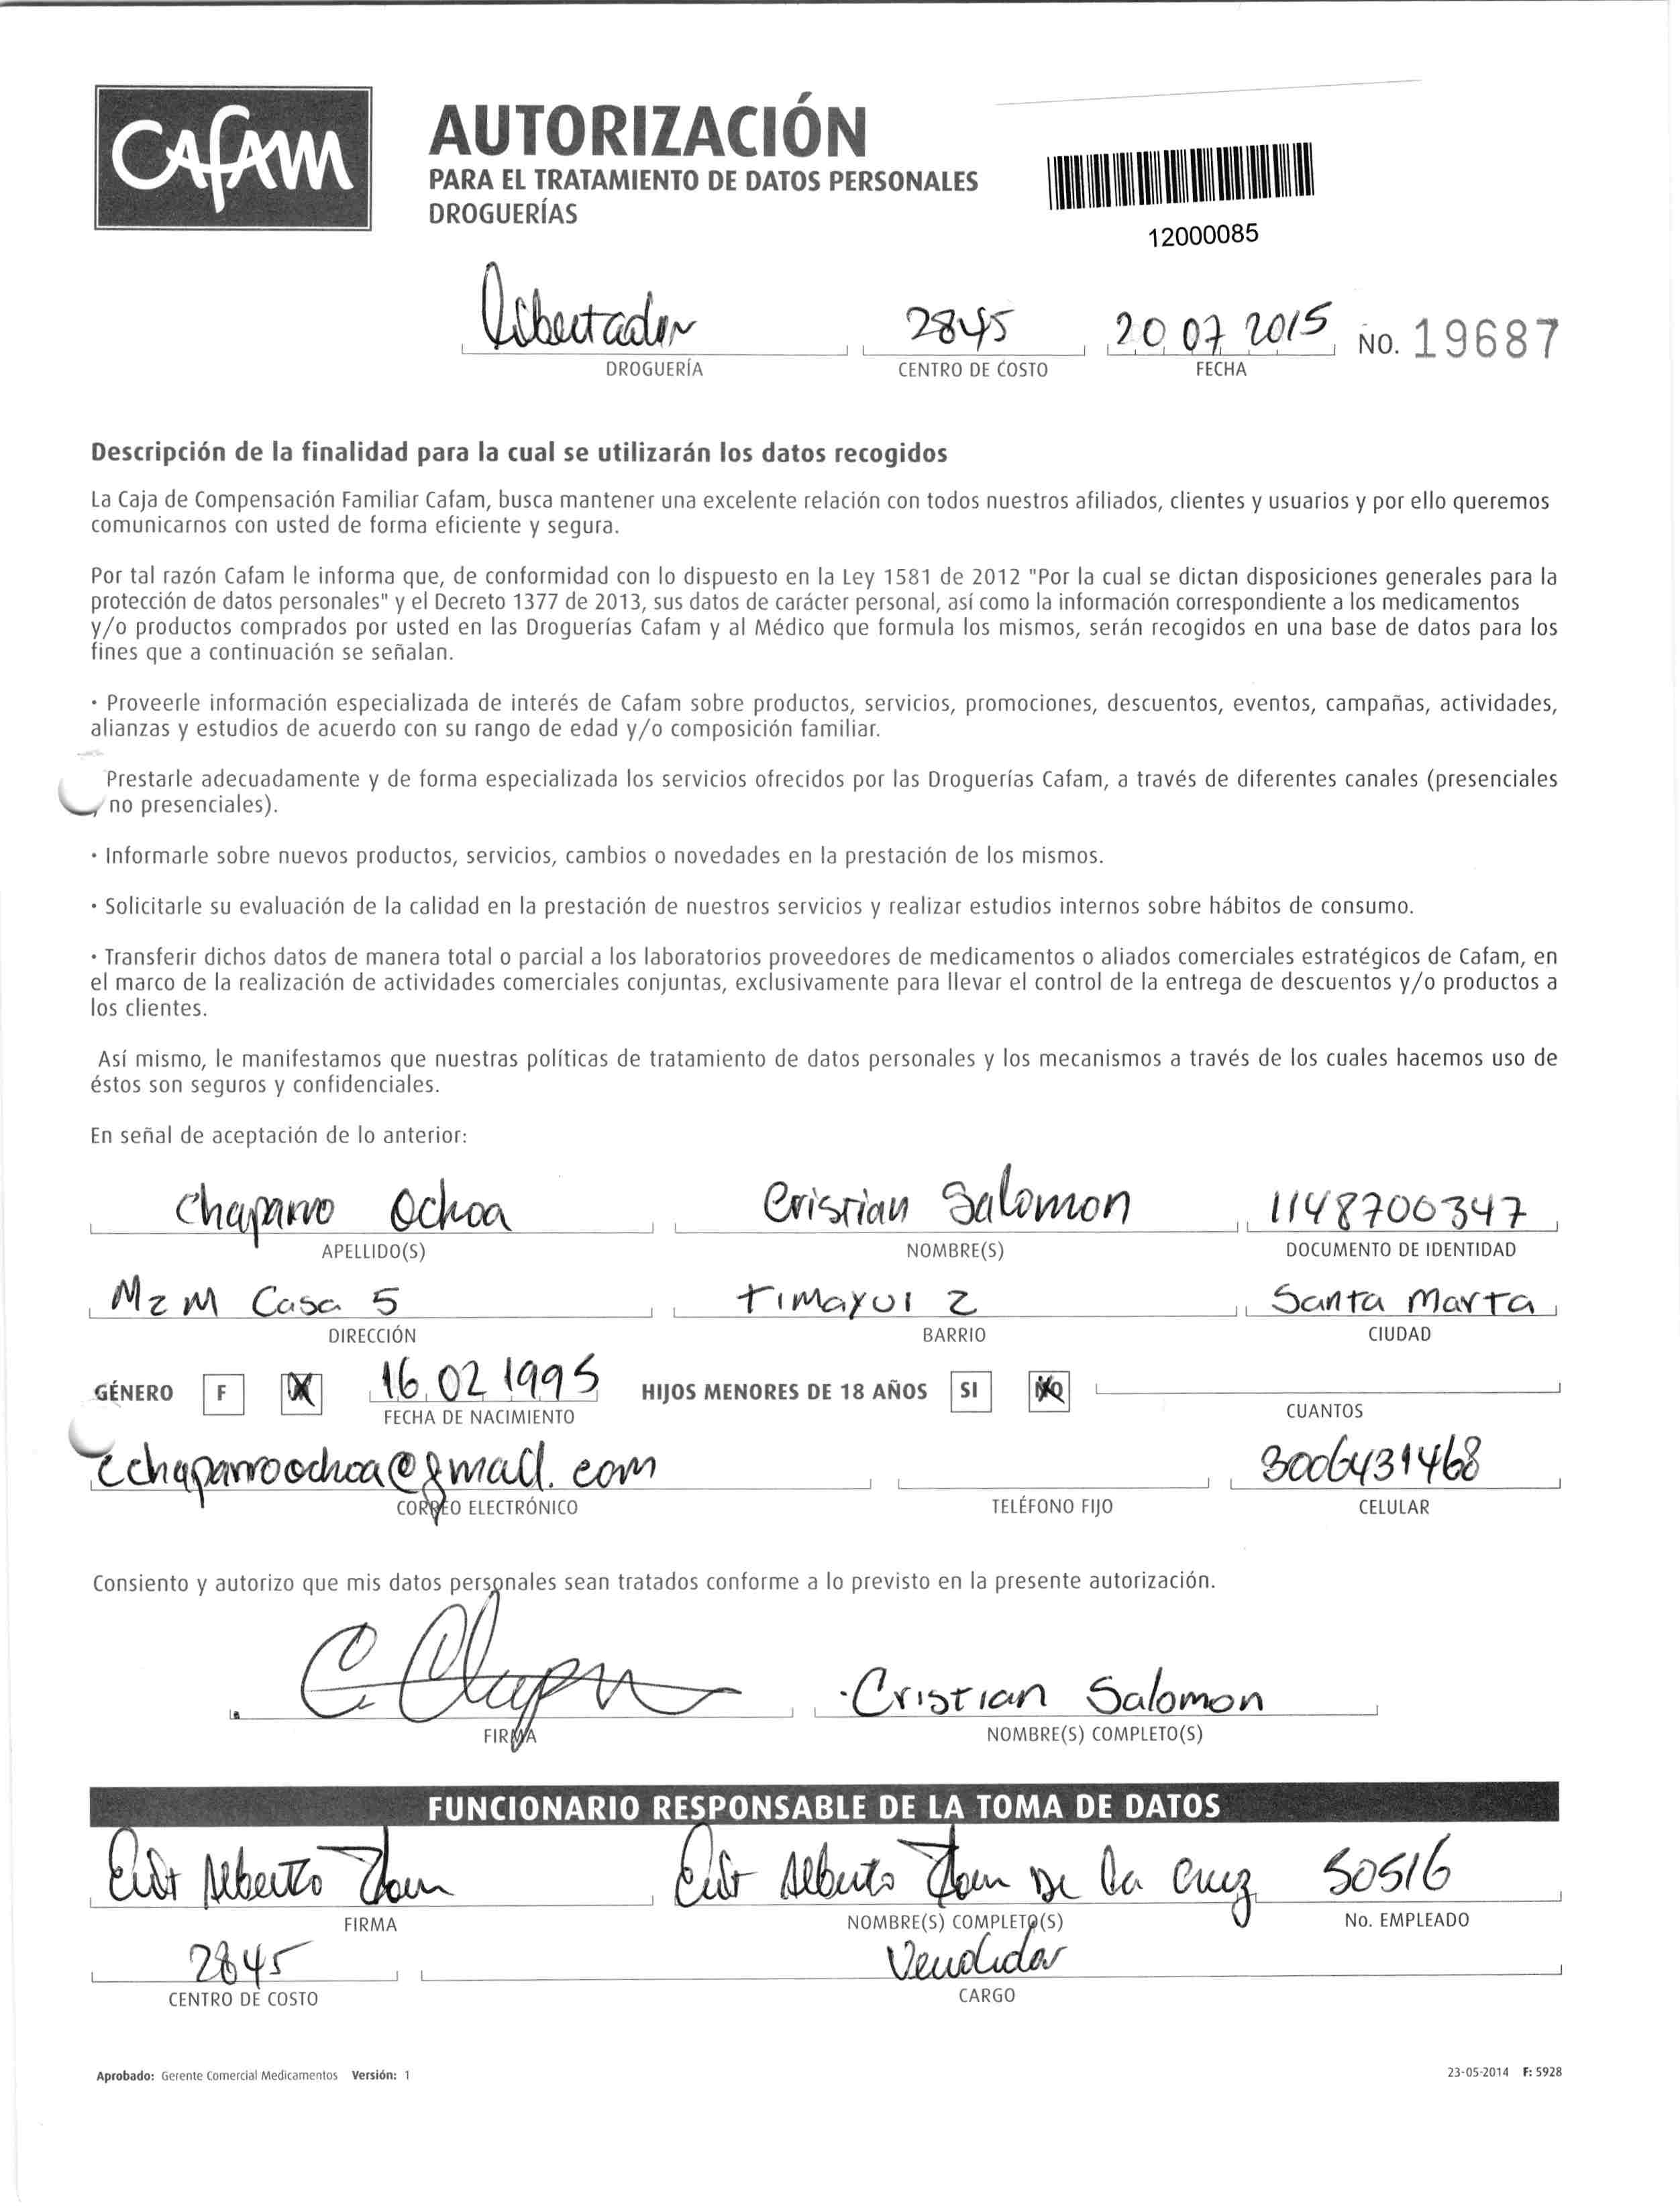 CAFAM
AUTORIZACIÓN
PARA EL TRATAMIENTO DE DATOS PERSONALES
DROGUERÍAS
12000085
libertador 2845 20 07 2015 No. 19687
DROGUERÍA CENTRO DE COSTO FECHA
Descripción de la finalidad para la cual se utilizarán los datos recogidos
La Caja de Compensación Familiar Cafam, busca mantener una excelente relación con todos nuestros afiliados, clientes y usuarios y por ello queremos
comunicarnos con usted de forma eficiente y segura.
Por tal razón Cafam le informa que, de conformidad con lo dispuesto en la Ley 1581 de 2012 "Por la cual se dictan disposiciones generales para la
protección de datos personales" y el Decreto 1377 de 2013, sus datos de carácter personal, así como la información correspondiente a los medicamentos
y/o productos comprados por usted en las Droguerías Cafam y al Médico que formula los mismos, serán recogidos en una base de datos para los
fines que a continuación se señalan.
· Proveerle información especializada de interés de Cafam sobre productos, servicios, promociones, descuentos, eventos, campañas, actividades,
alianzas y estudios de acuerdo con su rango de edad y/o composición familiar.
Prestarle adecuadamente y de forma especializada los servicios ofrecidos por las Droguerías Cafam, a través de diferentes canales (presenciales
y no presenciales).
· Informarle sobre nuevos productos, servicios, cambios o novedades en la prestación de los mismos.
· Solicitarle su evaluación de la calidad en la prestación de nuestros servicios y realizar estudios internos sobre hábitos de consumo.
· Transferir dichos datos de manera total o parcial a los laboratorios proveedores de medicamentos o aliados comerciales estratégicos de Cafam, en
el marco de la realización de actividades comerciales conjuntas, exclusivamente para llevar el control de la entrega de descuentos y/o productos a
los clientes.
Así mismo, le manifestamos que nuestras políticas de tratamiento de datos personales y los mecanismos a través de los cuales hacemos uso de
éstos son seguros y confidenciales.
En señal de aceptación de lo anterior:
Chaparro Ochoa Cristian Salomon 1148700347
APELLIDO(S) NOMBRE(S) DOCUMENTO DE IDENTIDAD
Mz M Casa 5 Timayui 2 Santa Marta
DIRECCIÓN BARRIO CIUDAD
GÉNERO F 16 02 1995 HIJOS MENORES DE 18 AÑOS SI NO
FECHA DE NACIMIENTO CUANTOS
cchaparroochoa@gmail.com 3006431468
CORREO ELECTRÓNICO TELÉFONO FIJO CELULAR
Consiento y autorizo que mis datos personales sean tratados conforme a lo previsto en la presente autorización.
Cristian Salomon
FIRMA NOMBRE(S) COMPLETO(S)
FUNCIONARIO RESPONSABLE DE LA TOMA DE DATOS
Alberto Alberto De la Cruz 50516
FIRMA NOMBRE(S) COMPLETO(S) No. EMPLEADO
2845 Vendedor
CENTRO DE COSTO CARGO
Aprobado: Gerente Comercial Medicamentos Versión: 1 23-05-2014 F: 5928